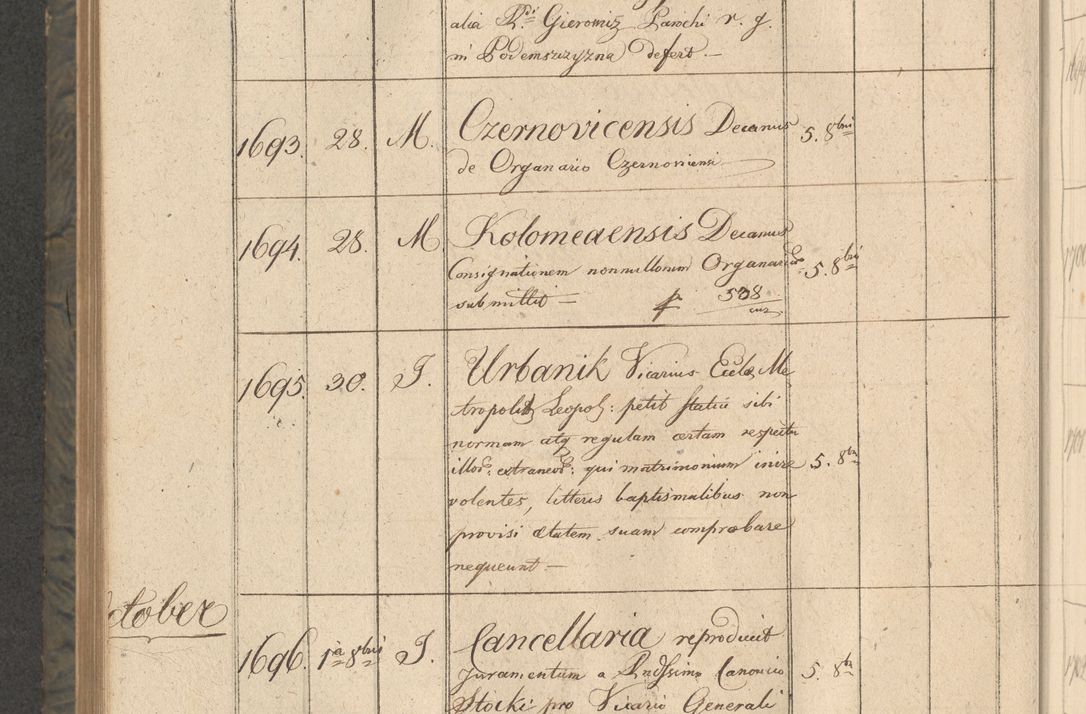 alia Rdi Gieromiz Parochi r. g.
in Podemszczyzna defert –
1693. 28. M. Czernovicensis Decanus 5. 8bris
de Organario Czernoviensi
1694. 28. M Kolomeaensis Decanus
Consignationem nonnullorum Organario 5. 8bris
submittit – f. 538
1695. 30. J. Urbanik Vicarius Eccle Me-
tropolit Leopol: petit statui sibi
normam atq regulam certam respectu
illor. extraneor: qui matrimonium inire 5. 8bris
volentes, litteris baptismalibus non
provisi ætatem suam comprobare
nequeunt –
ctober
1696. 1a 8bris J. Cancellaria reproducit
Juramentum a Rndssimo Canonico 5 8bris
Stocki pro Vicario Generali